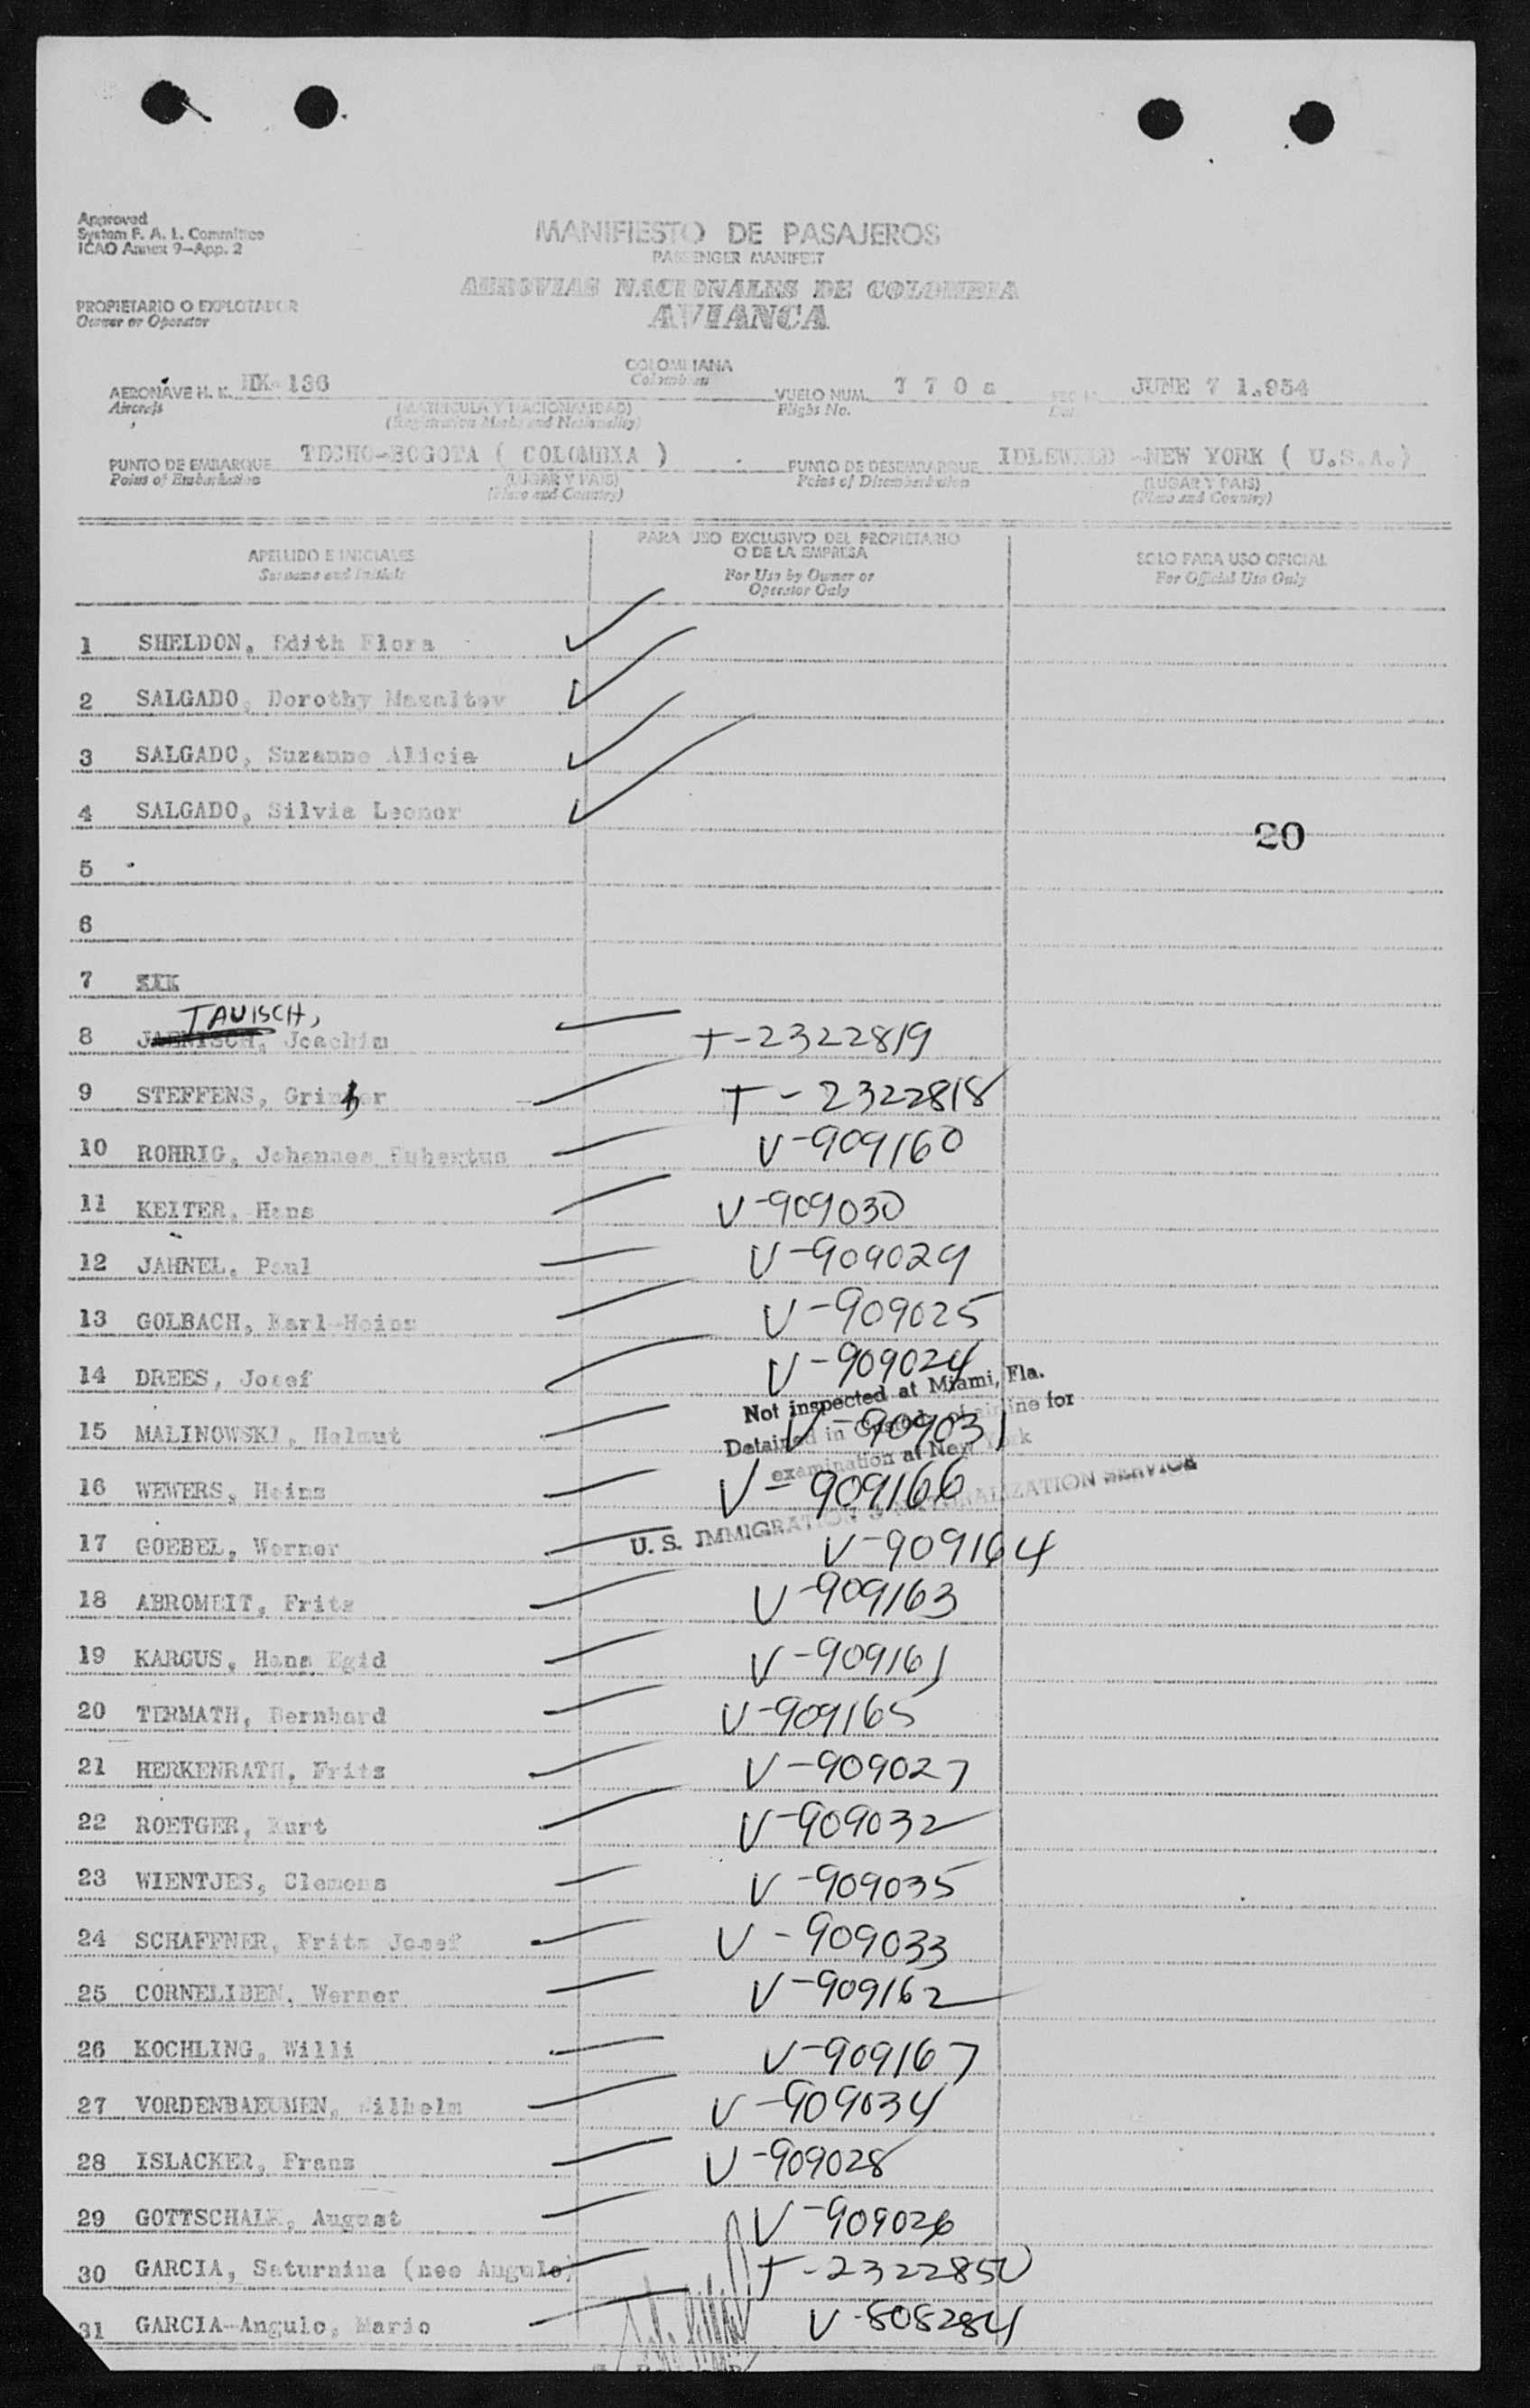 Approved
System F. A. L. Committee
ICAO Annex 9-App. 2
MANIFIESTO DE PASAJEROS
PASSENGER MANIFEST
AEROVIAS NACIONALES DE COLOMBIA
AVIANCA
PROPIETARIO O EXPLOTADOR
Owner or Operator
COLOMBIANA
Colombian
AERONAVE H. K. HK-136 VUELO NUM. 7 7 0 a JUNE 7 1.954
Aircraft (MATRICULA Y NACIONALIDAD) Flight No.
(Registration Marks and Nationality)
PUNTO DE EMBARQUE TECHO-BOGOTA ( COLOMBIA ) PUNTO DE DESEMBARQUE IDLEWILD -NEW YORK ( U.S.A.)
Point of Embarkation (LUGAR Y PAIS) Point of Disembarkation (LUGAR Y PAIS)
(Place and Country) (Place and Country)
APELLIDO E INICIALES PARA USO EXCLUSIVO DEL PROPIETARIO SOLO PARA USO OFICIAL
O DE LA EMPRESA
Surname and Initials For Use by Owner or For Official Use Only
Operator Only
1 SHELDON, Edith Flora
2 SALGADO, Dorothy Mazaltov
3 SALGADO, Suzanne Alicia
4 SALGADO, Silvia Leonor
20
5
6
7
TAUISCH,
8 JAENISCH, Joachim T-2322819
9 STEFFENS, T-2322818
10 ROHRIG, Johannes Hubertus V-909160
11 KEITER, Hans V-909030
12 JAHNEL, Paul V-909029
13 GOLBACH, Karl-Heinz V-909025
14 DREES, Josef V-909024
Not inspected at Miami, Fla.
15 MALINOWSKI, Helmut V-909031
Detained in Custody of airline for
examination at New York
16 WEWERS, Heinz V-909166
U. S. IMMIGRATION & NATURALIZATION SERVICE
17 GOEBEL, Werner V-909164
18 ABROMEIT, Fritz V-909163
19 KARGUS, Hans Egid V-909161
20 TERMATH, Bernhard V-909165
21 HERKENRATH, Fritz V-909027
22 ROETGER, Kurt V-909032
23 WIENTJES, Clemens V-909035
24 SCHAFFNER, Fritz Josef V-909033
25 CORNELIBEN, Werner V-909162
26 KOCHLING, Willi V-909167
27 VORDENBAEUMEN, Wilhelm V-909034
28 ISLACKER, Franz V-909028
29 GOTTSCHALK, August V-909026
30 GARCIA, Saturnina (nee Angulo) T-2322850
31 GARCIA-Angulo, Mario V-808284